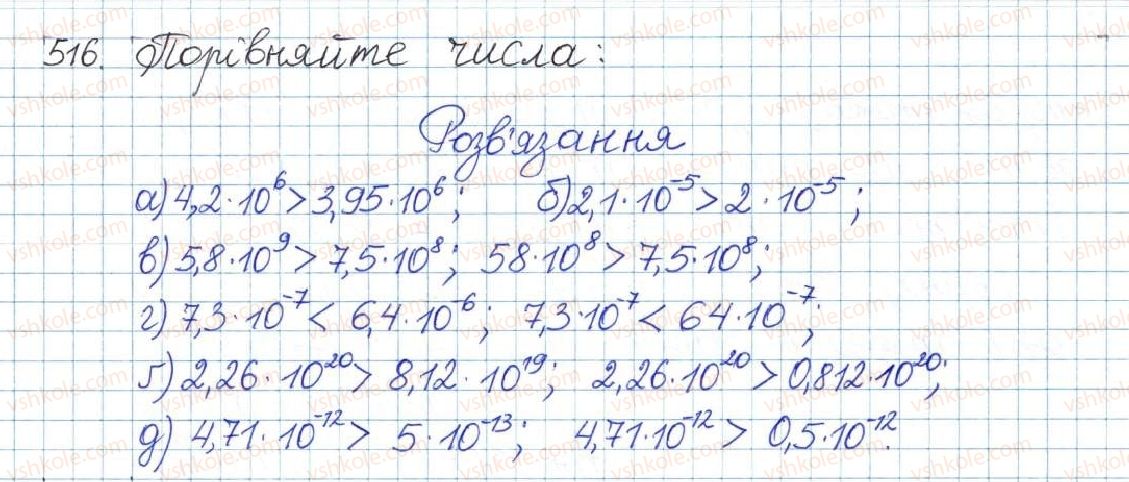 516. Порівняйте числа:
Розв'язання
а) 4,2·10⁶ > 3,95·10⁶; б) 2,1·10⁻⁵ > 2·10⁻⁵;
в) 5,8·10⁹ > 7,5·10⁸; 58·10⁸ > 7,5·10⁸;
г) 7,3·10⁻⁷ < 6,4·10⁻⁶; 7,3·10⁻⁷ < 64·10⁻⁷;
ґ) 2,26·10²⁰ > 8,12·10¹⁹; 2,26·10²⁰ > 0,812·10²⁰;
д) 4,71·10⁻¹² > 5·10⁻¹³; 4,71·10⁻¹² > 0,5·10⁻¹².